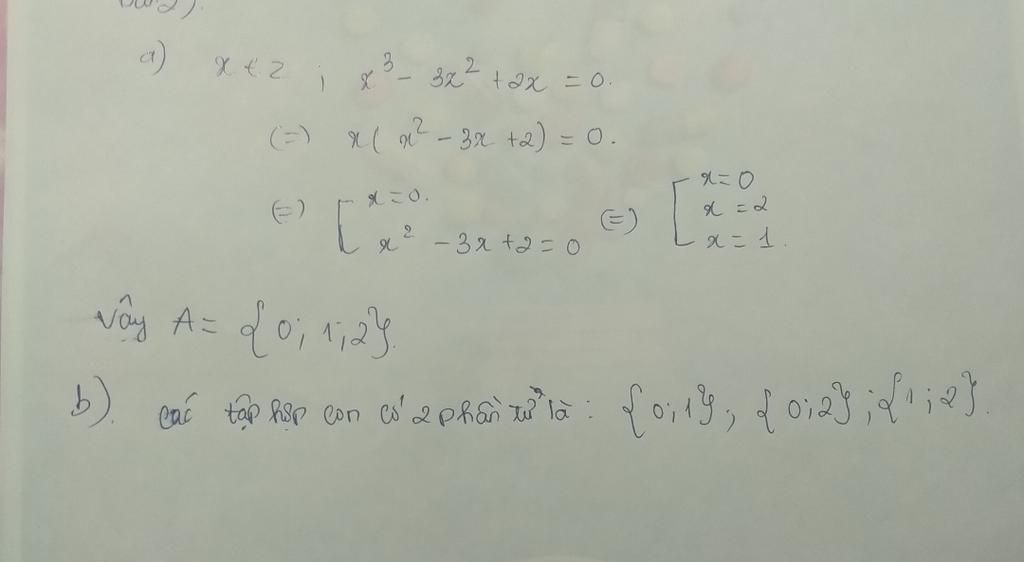 a) x ∈ Z ; x³ - 3x² + 2x = 0.
(=) x( x² - 3x + 2) = 0.
(=) [ x = 0. x² - 3x + 2 = 0 (=) [ x = 0 x = 2 x = 1.
Vậy A = { 0; 1; 2}.
b). các tập hợp con có 2 phần tử là: { 0; 1}; { 0; 2}; { 1; 2}.